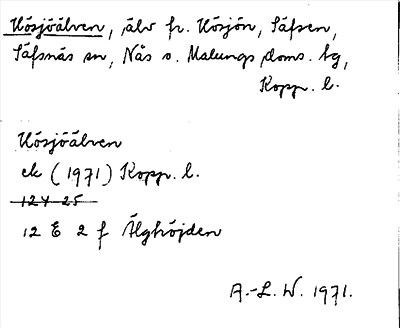 Hösjöälven, älv fr. Hösjön, Säfsen,
Säfsnäs sn, Nås o. Malungs doms. tg,
Kopp. l.
Hösjöälven
ek (1971) Kopp. l.
12 Y 25
12 E 2 f Älghöjden
A.-L. W. 1971.